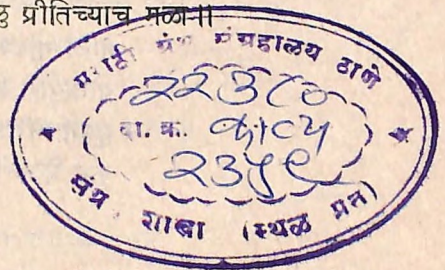 ु प्रीतिच्याच मळा॥
मराठी ग्रंथ संग्रहालय ठाणे
२२३८०
दा. क. काव्य
२३५९
ग्रंथ शाखा (स्थळ प्रत)